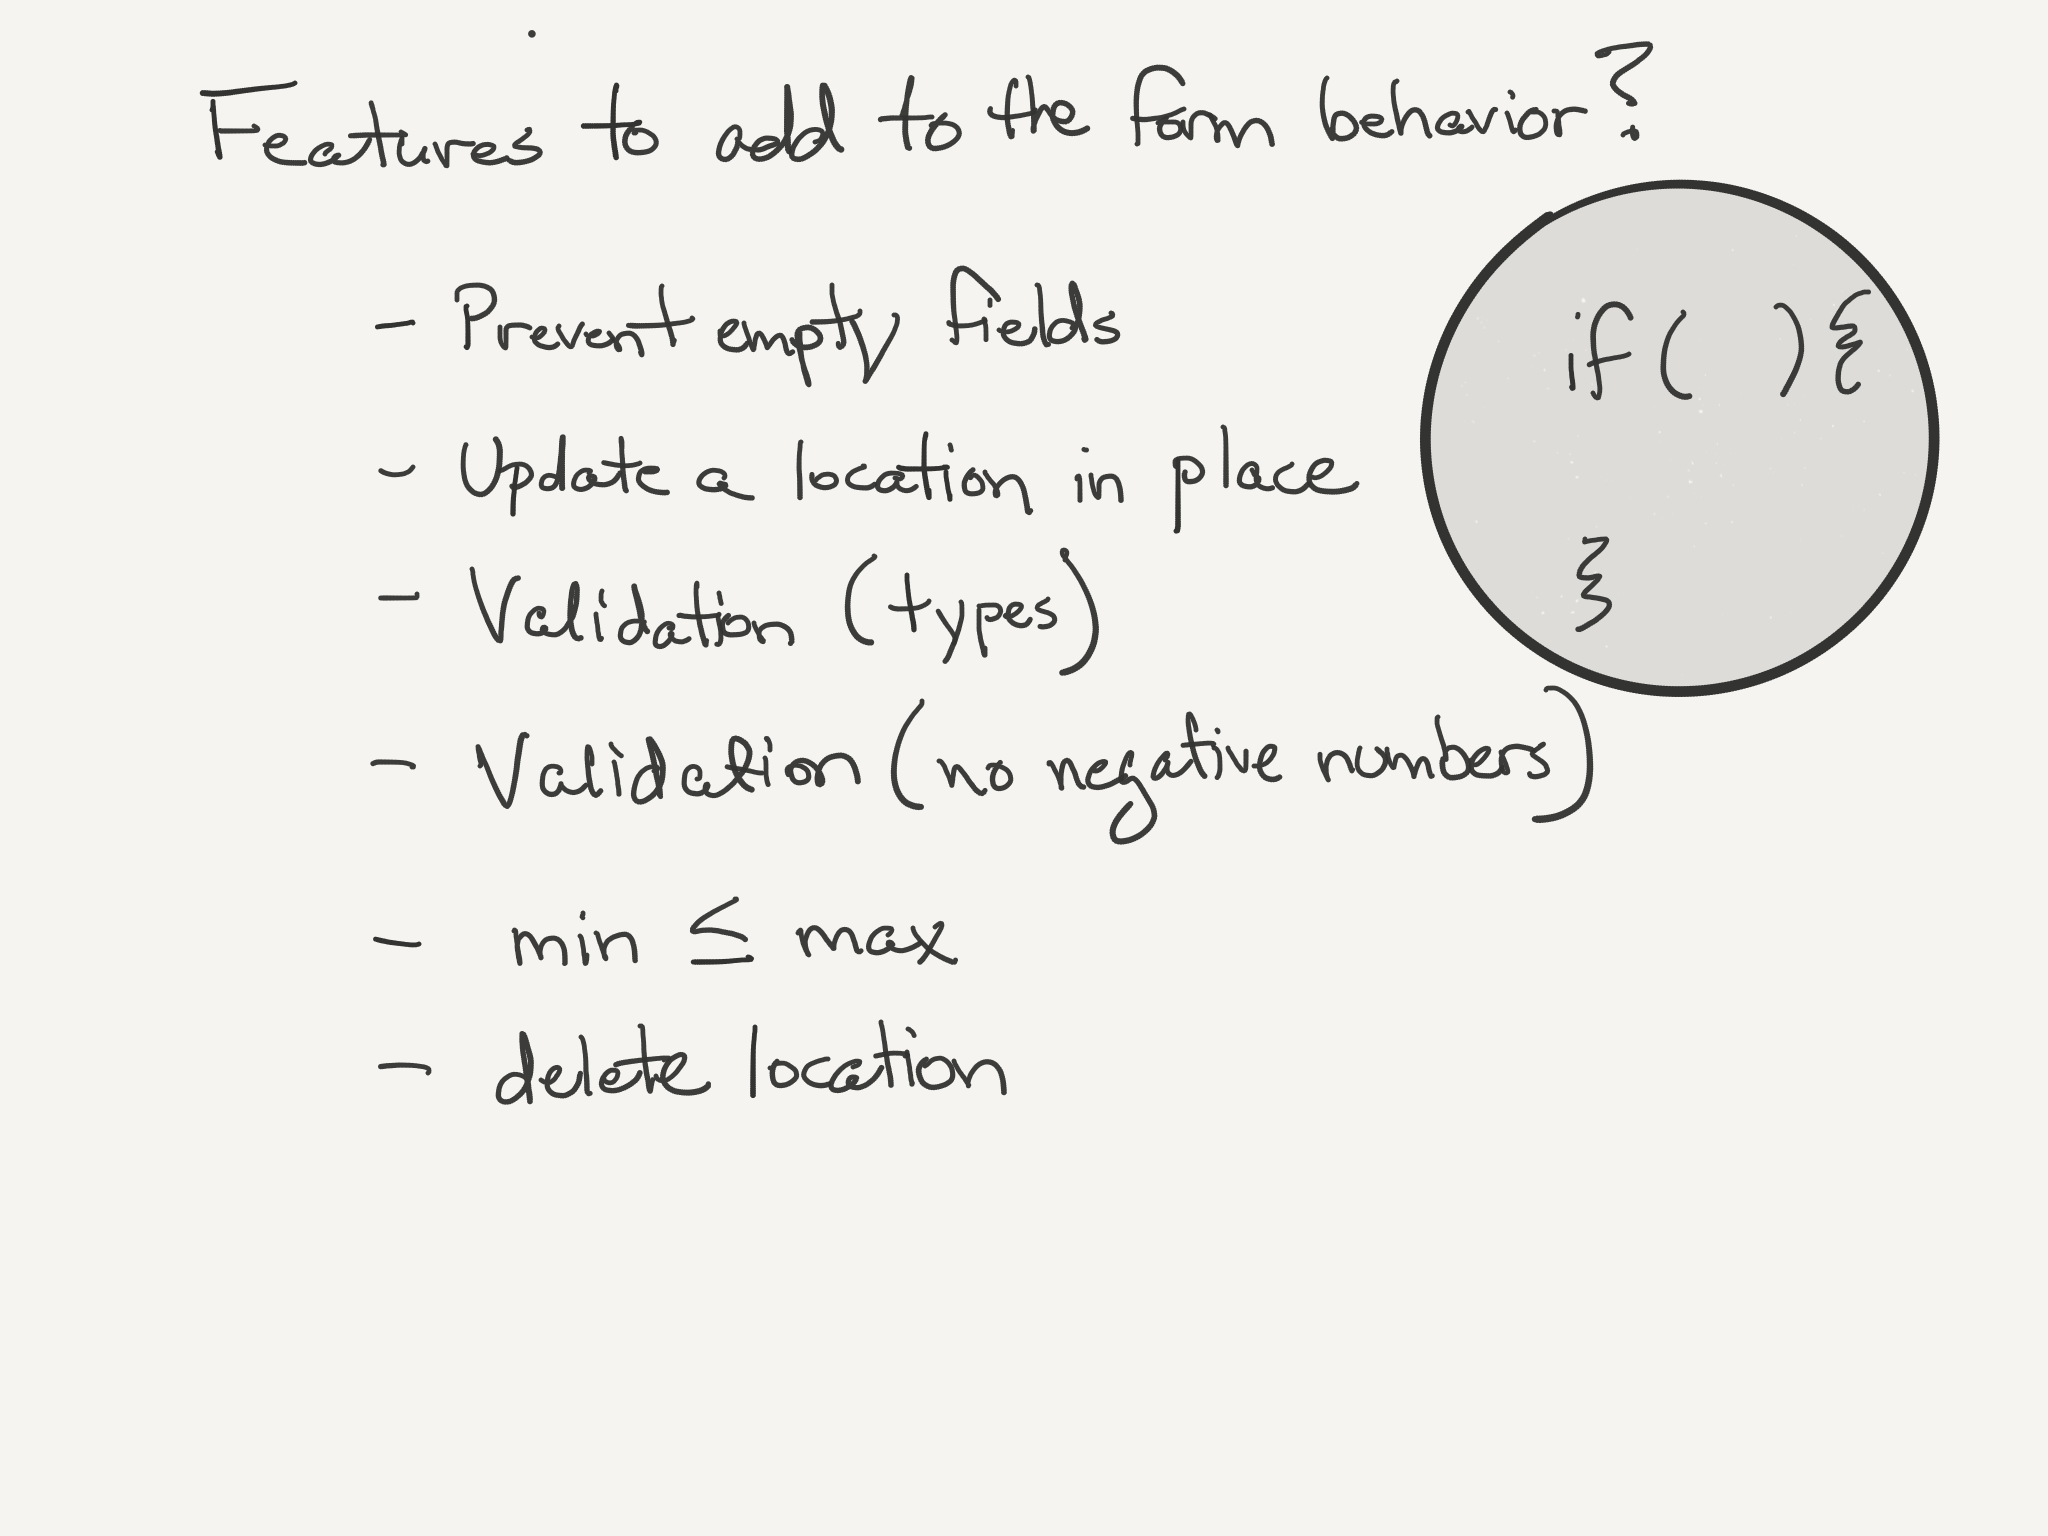 Features to add to the form behavior?
- Prevent empty fields
- Update a location in place
- Validation (types)
- Validation (no negative numbers)
- min ≤ max
- delete location
if ( ) {
}